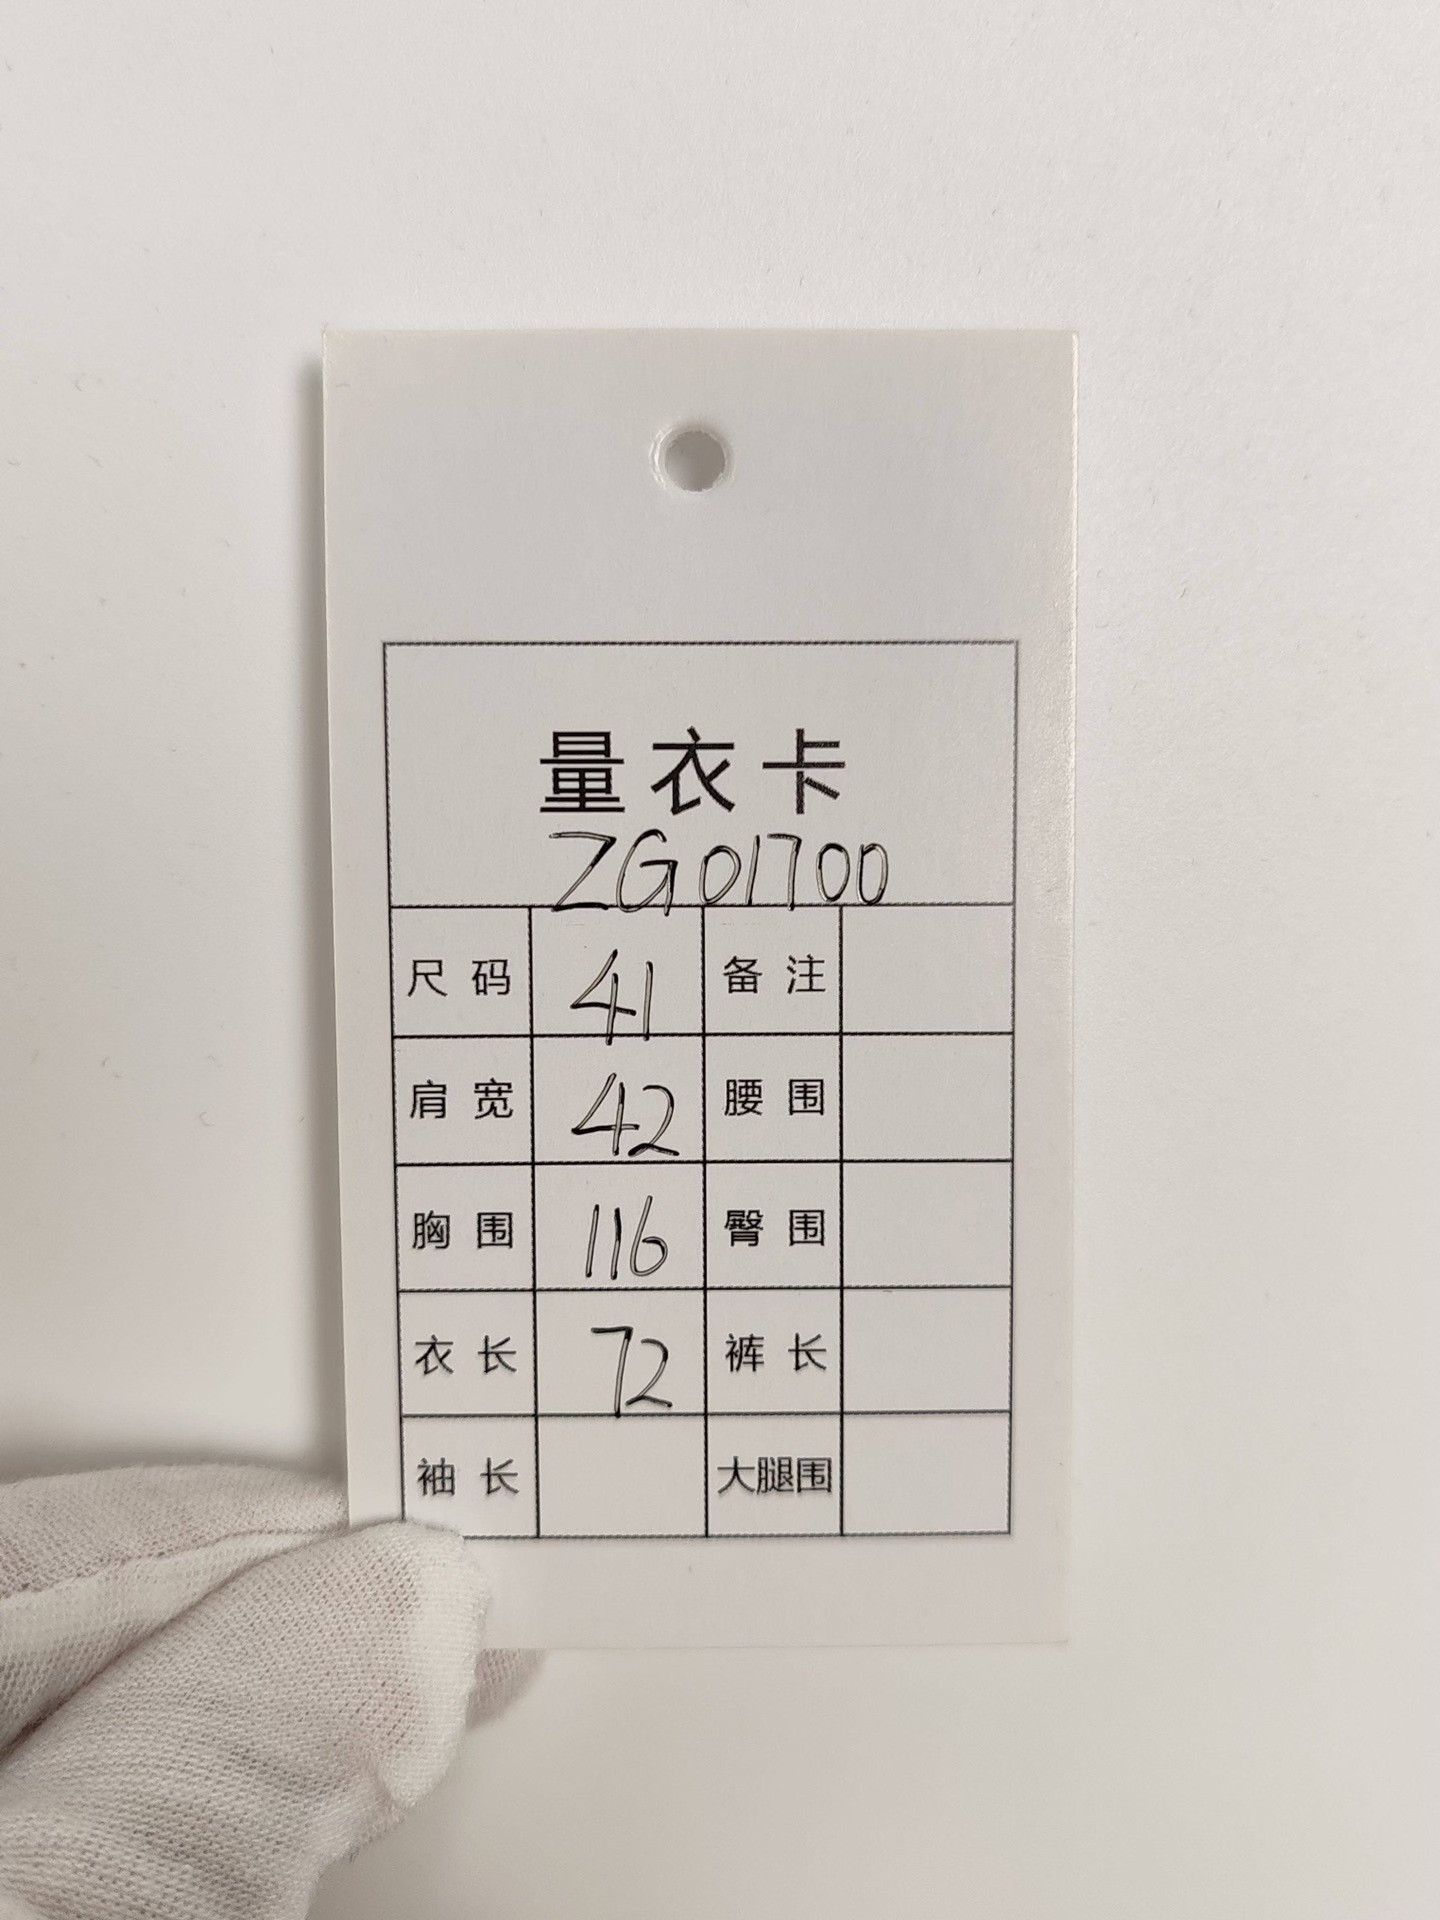 量衣卡
ZG01700
尺码 41 备注
肩宽 42 腰围
胸围 116 臀围
衣长 72 裤长
袖长 大腿围